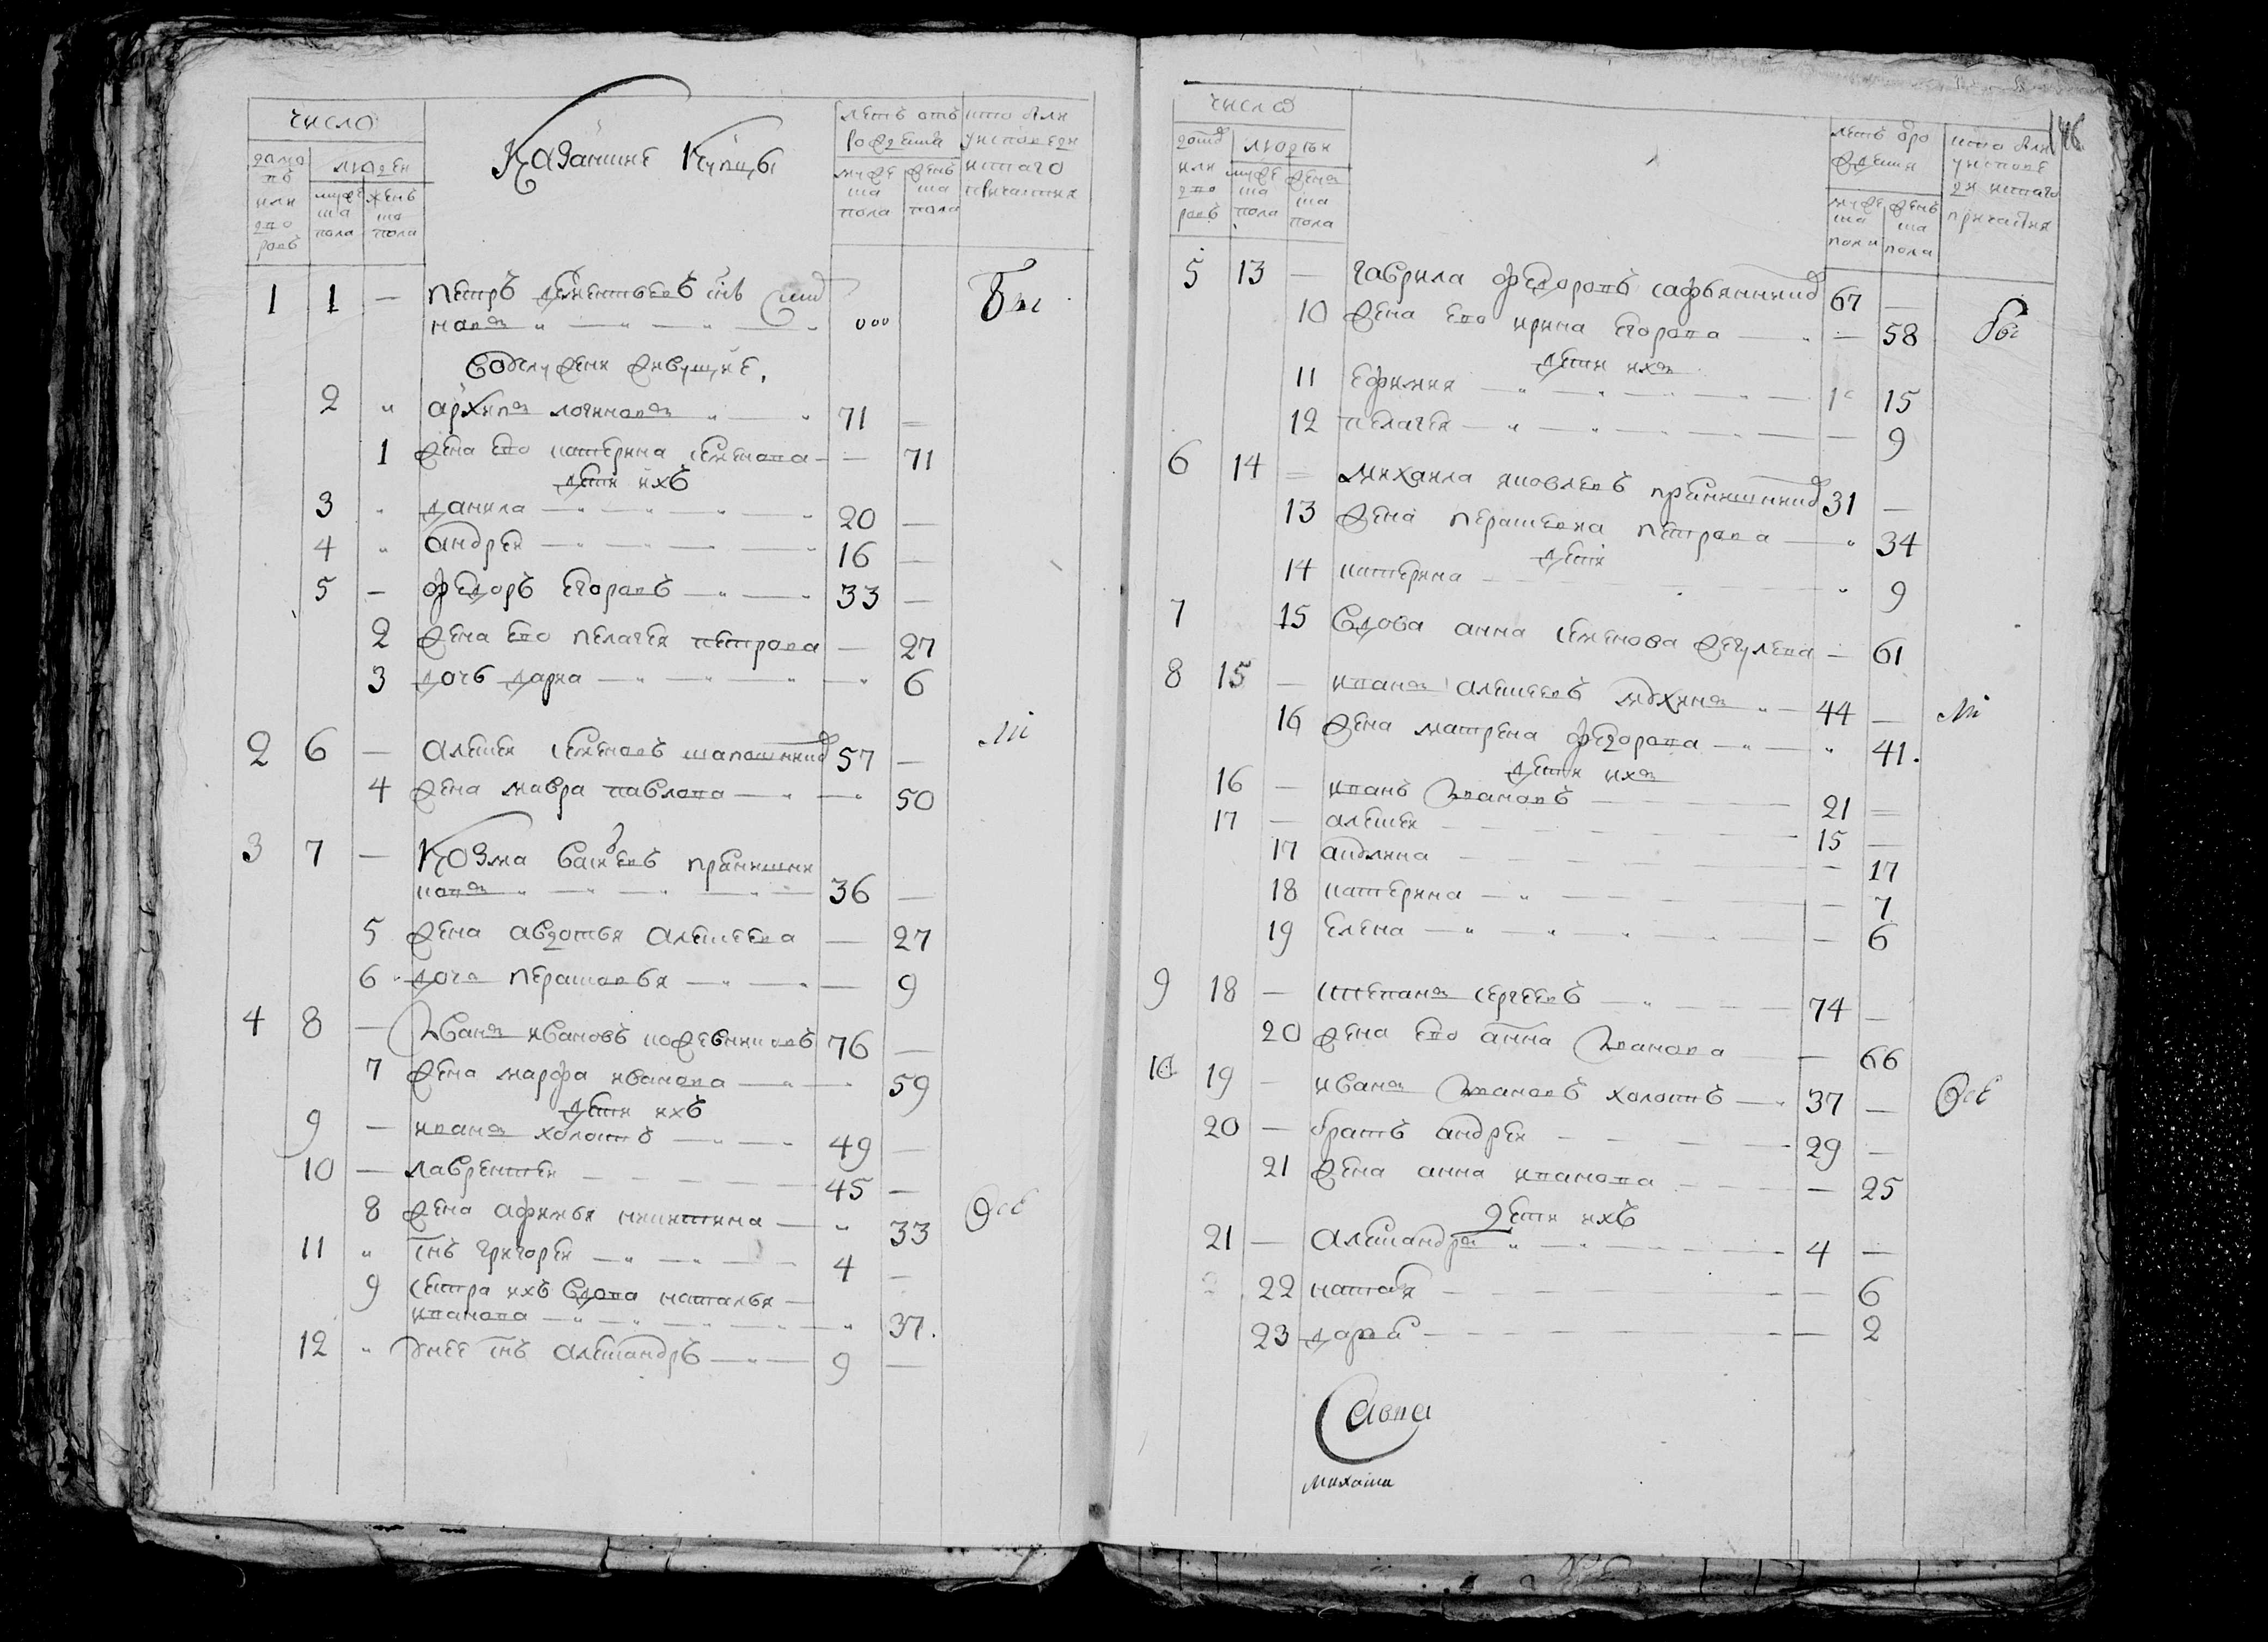 число
домовъ или дворовъ
людей
мужеска пола
женска пола
Казанские Купцы
летъ отъ рождения
мужеска пола
женска пола
кто были у исповеди и святаго причастия
1 1 — Петръ Дементьевъ снъ
Бы
2 " архипъ логиновъ " — " 71 —
1 жена ево катерина семенова — — 71
дети ихъ
3 " данила — " — " — " 20 —
4 " андрей — " — " — " 16 —
5 — федоръ егоровъ — " — " 33 —
2 жена ево пелагея петрова — 27
3 дочь дарья — " — " — " 6
2 6 — алексей семеновъ шапошникъ 57 —
4 жена мавра павлова — " — " 50
3 7 — Козма васильевъ
ковъ " — " — " — 36 —
5 жена авдотья алексеева — 27
6 дочь парасковья — " — " — 9
4 8 — Иванъ ивановъ кожевниковъ 76 —
7 жена марфа иванова — " — 59
дети ихъ
9 — иванъ холостъ — " — " 49 —
10 — лаврентей — — — — 45 —
8 жена афимья никитина — " 33
Все
11 " снъ григорей — " — " — 4 —
9 сестра ихъ вдова наталья —
иванова — " — " — " — " 37.
12 " у нее снъ александръ — " — 9 —
146
число
домовъ или дворовъ
людей
мужеска пола
женска пола
летъ от рождения
мужеска пола
женска пола
кто были у исповеди и святаго причастия
5 13 — гаврила федоровъ сафьянникъ 67 —
10 жена ево ирина егорова — " — 58
бы
дети ихъ
11 ефимия — " — " — " — 15
12 пелагея — " — " — " — 9
6 14 — михаила яковлевъ 31 —
13 жена парасковья петрова — " 34
дети
14 катерина — " 9
7 15 вдова анна семенова — 61
8 15 — иванъ алексеевъ " — 44 —
16 жена матрена федорова — " — " 41.
дети ихъ
16 — иванъ ивановъ — — — 21 —
17 — алексей — — — 15 —
17 акулина — — — 17
18 катерина — " — — 7
19 елена — " — " — " — 6
9 18 — степанъ сергеевъ — " — — 74 —
20 жена ево анна иванова — — 66
10 19 — иванъ ивановъ холостъ — " 37 —
Все
20 — братъ андрей — — — 29 —
21 жена анна иванова — — — 25
дети ихъ
21 — александръ " — " — — 4 —
22 наталья — — — 6
23 дарья — — — 2
Савва